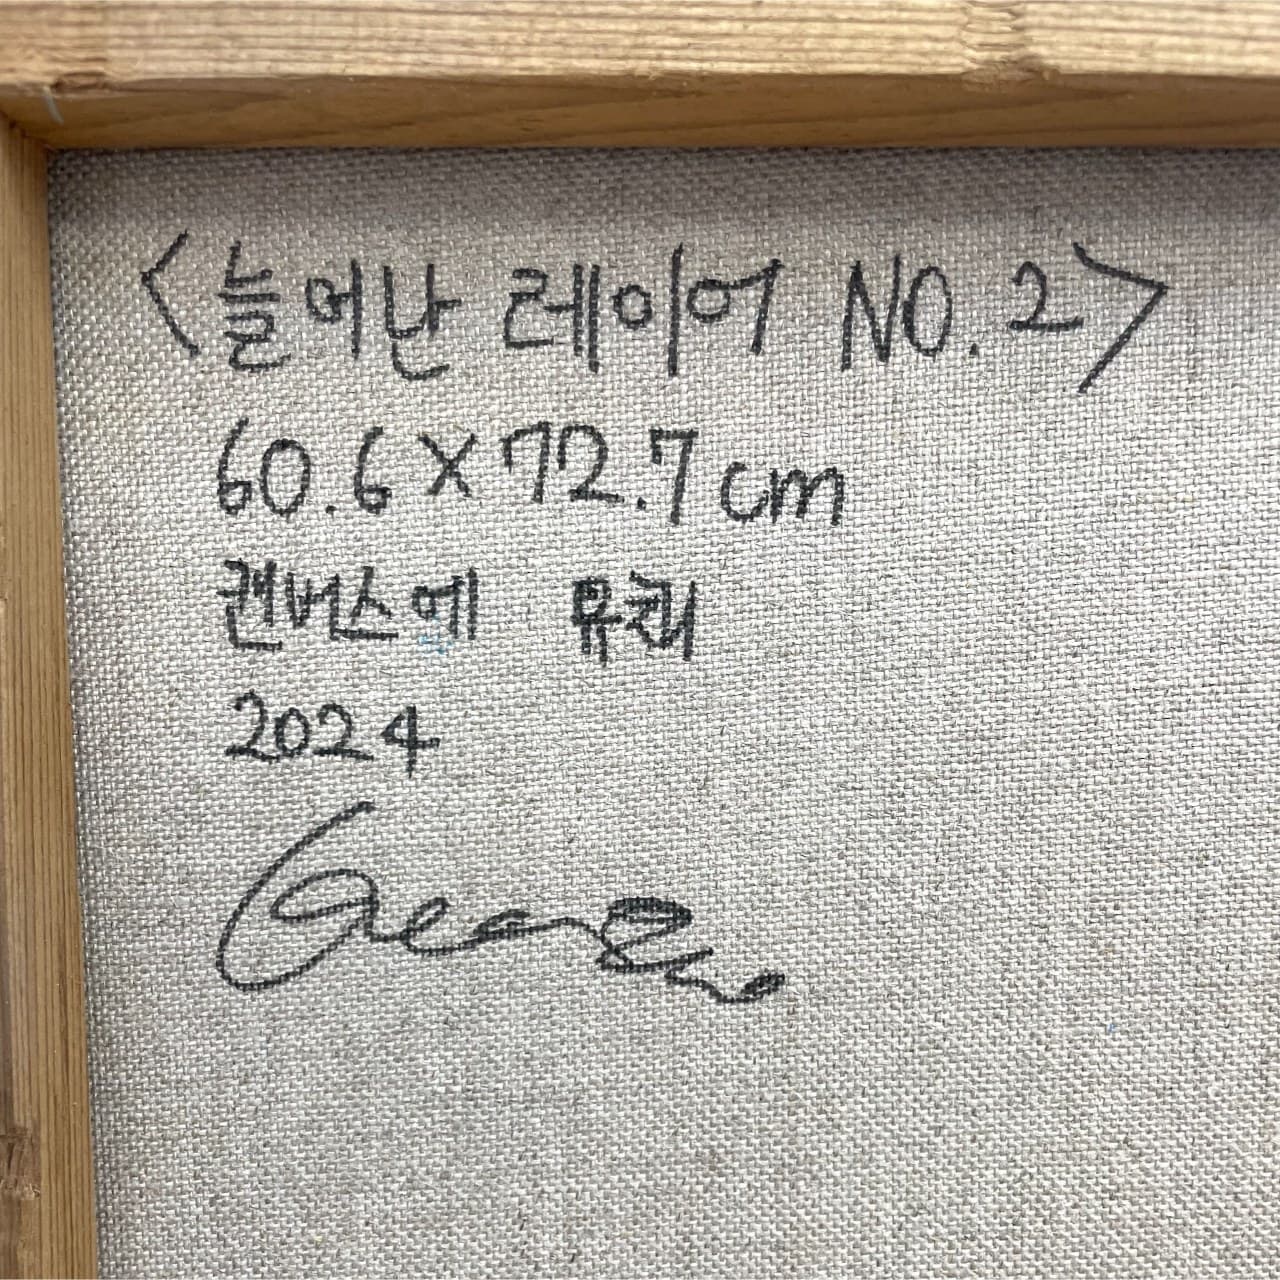 <늘어난 레이어 NO.2>
60.6×72.7cm
캔버스에 유채
2024